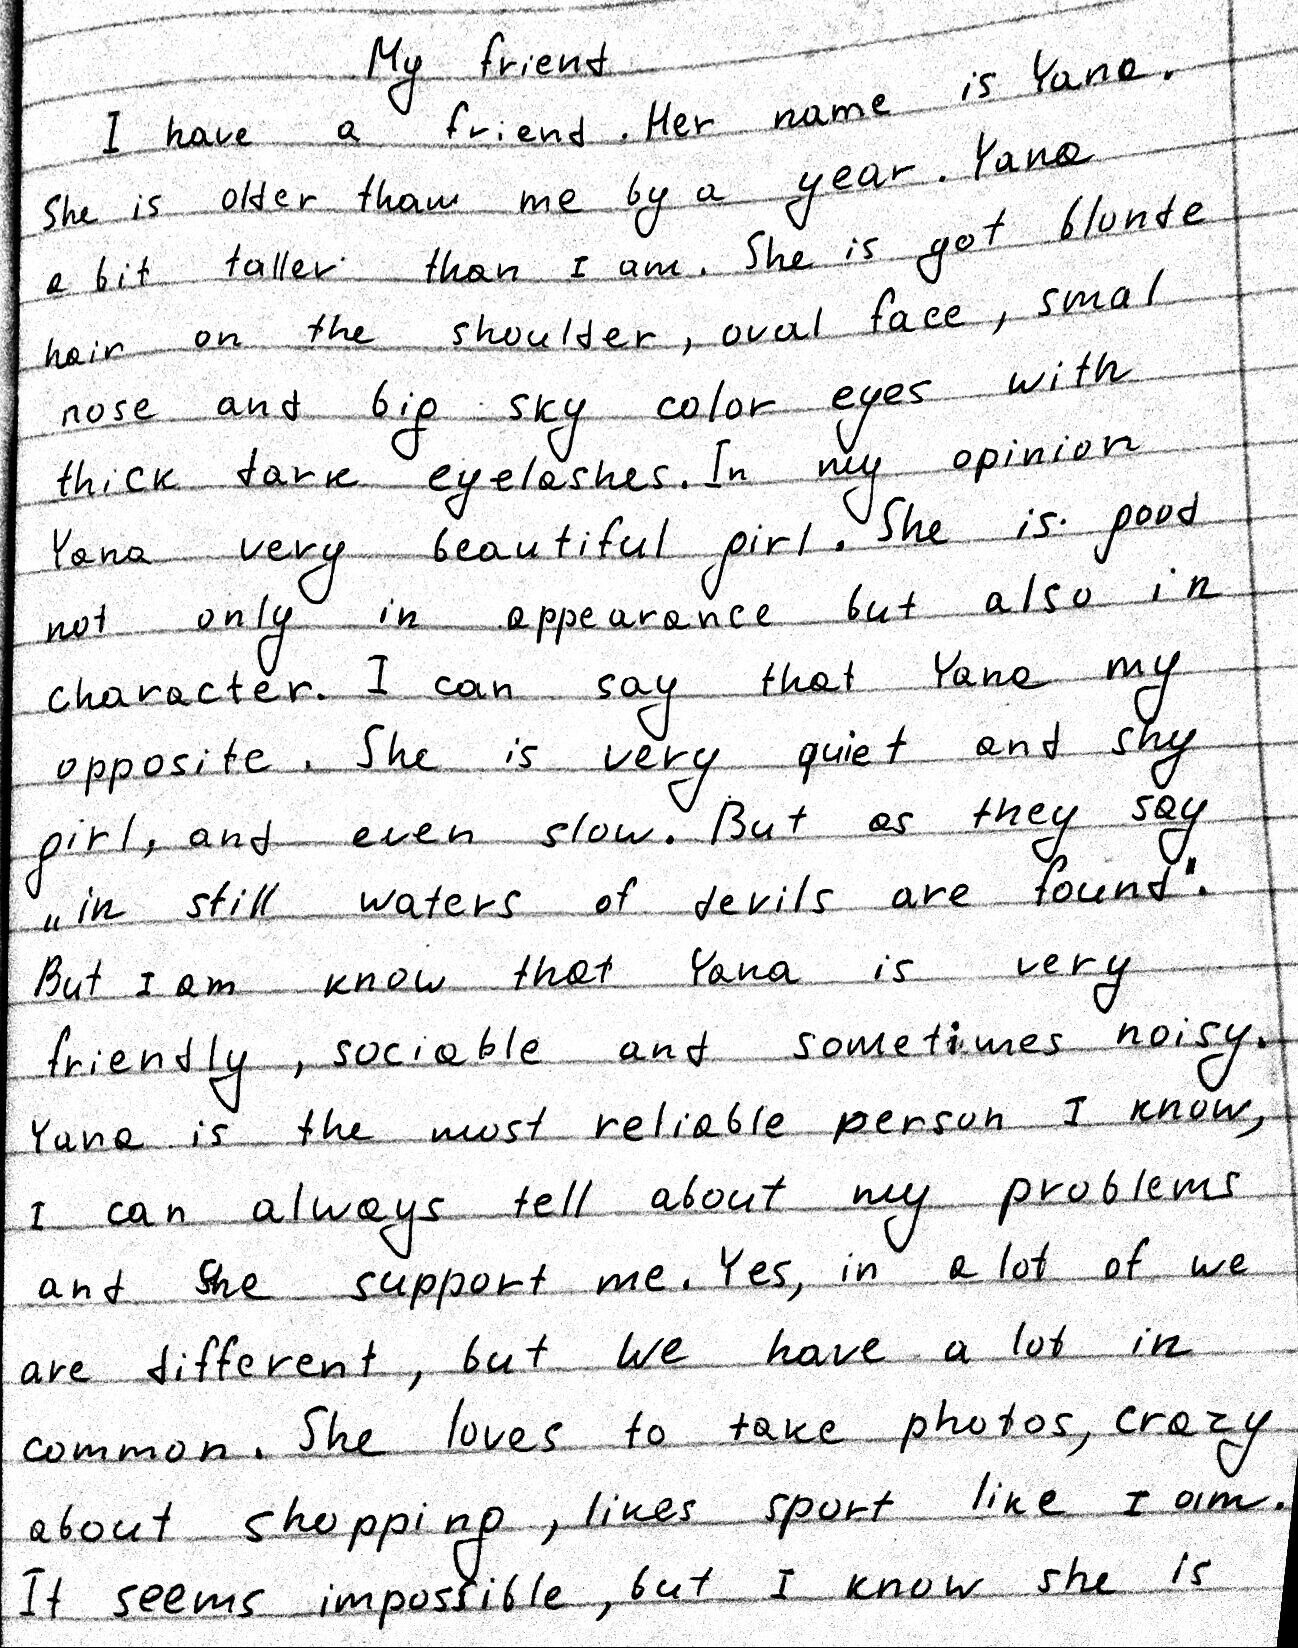 My friend
I have a friend. Her name is Yana.
She is older tham me by a year. Yana
a bit taller than I am. She is got blonde
hair on the shoulder, oval face, smal
nose and big sky color eyes with
thick dark eyelashes. In my opinion
Yana very beautiful girl. She is good
not only in appearance but also in
character. I can say that Yana my
opposite. She is very quiet and shy
girl, and even slow. But as they say
„in still waters of devils are found".
But I am know that Yana is very
friendly, sociable and sometimes noisy.
Yana is the most reliable person I know,
I can always tell about my problems
and she support me. Yes, in a lot of we
are different, but we have a lot in
common. She loves to take photos, crazy
about shopping, likes sport like I am.
It seems impossible, but I know she is